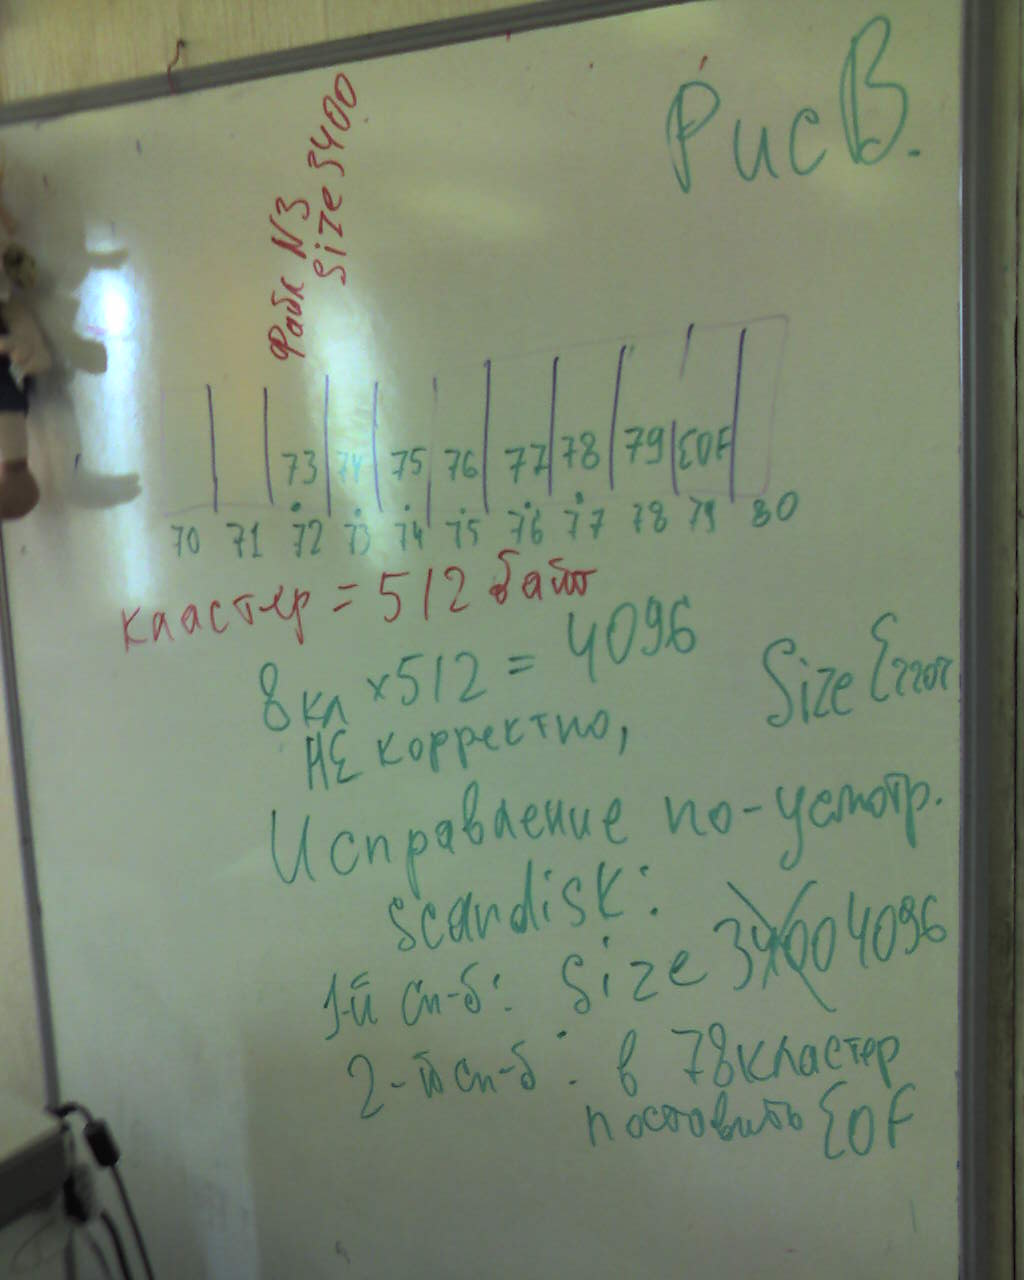 Рис В.
Файл N3
Size 3400
73 74 75 76 77 78 79 EOF
70 71 72 73 74 75 76 77 78 79 80
кластер = 512 байт
8 кл × 512 = 4096
НЕ корректно, Size Error
Исправление по-усмотр.
scandisk:
1-й сп-б: Size 3400 4096
2-й сп-б: в 78 кластер
поставить EOF